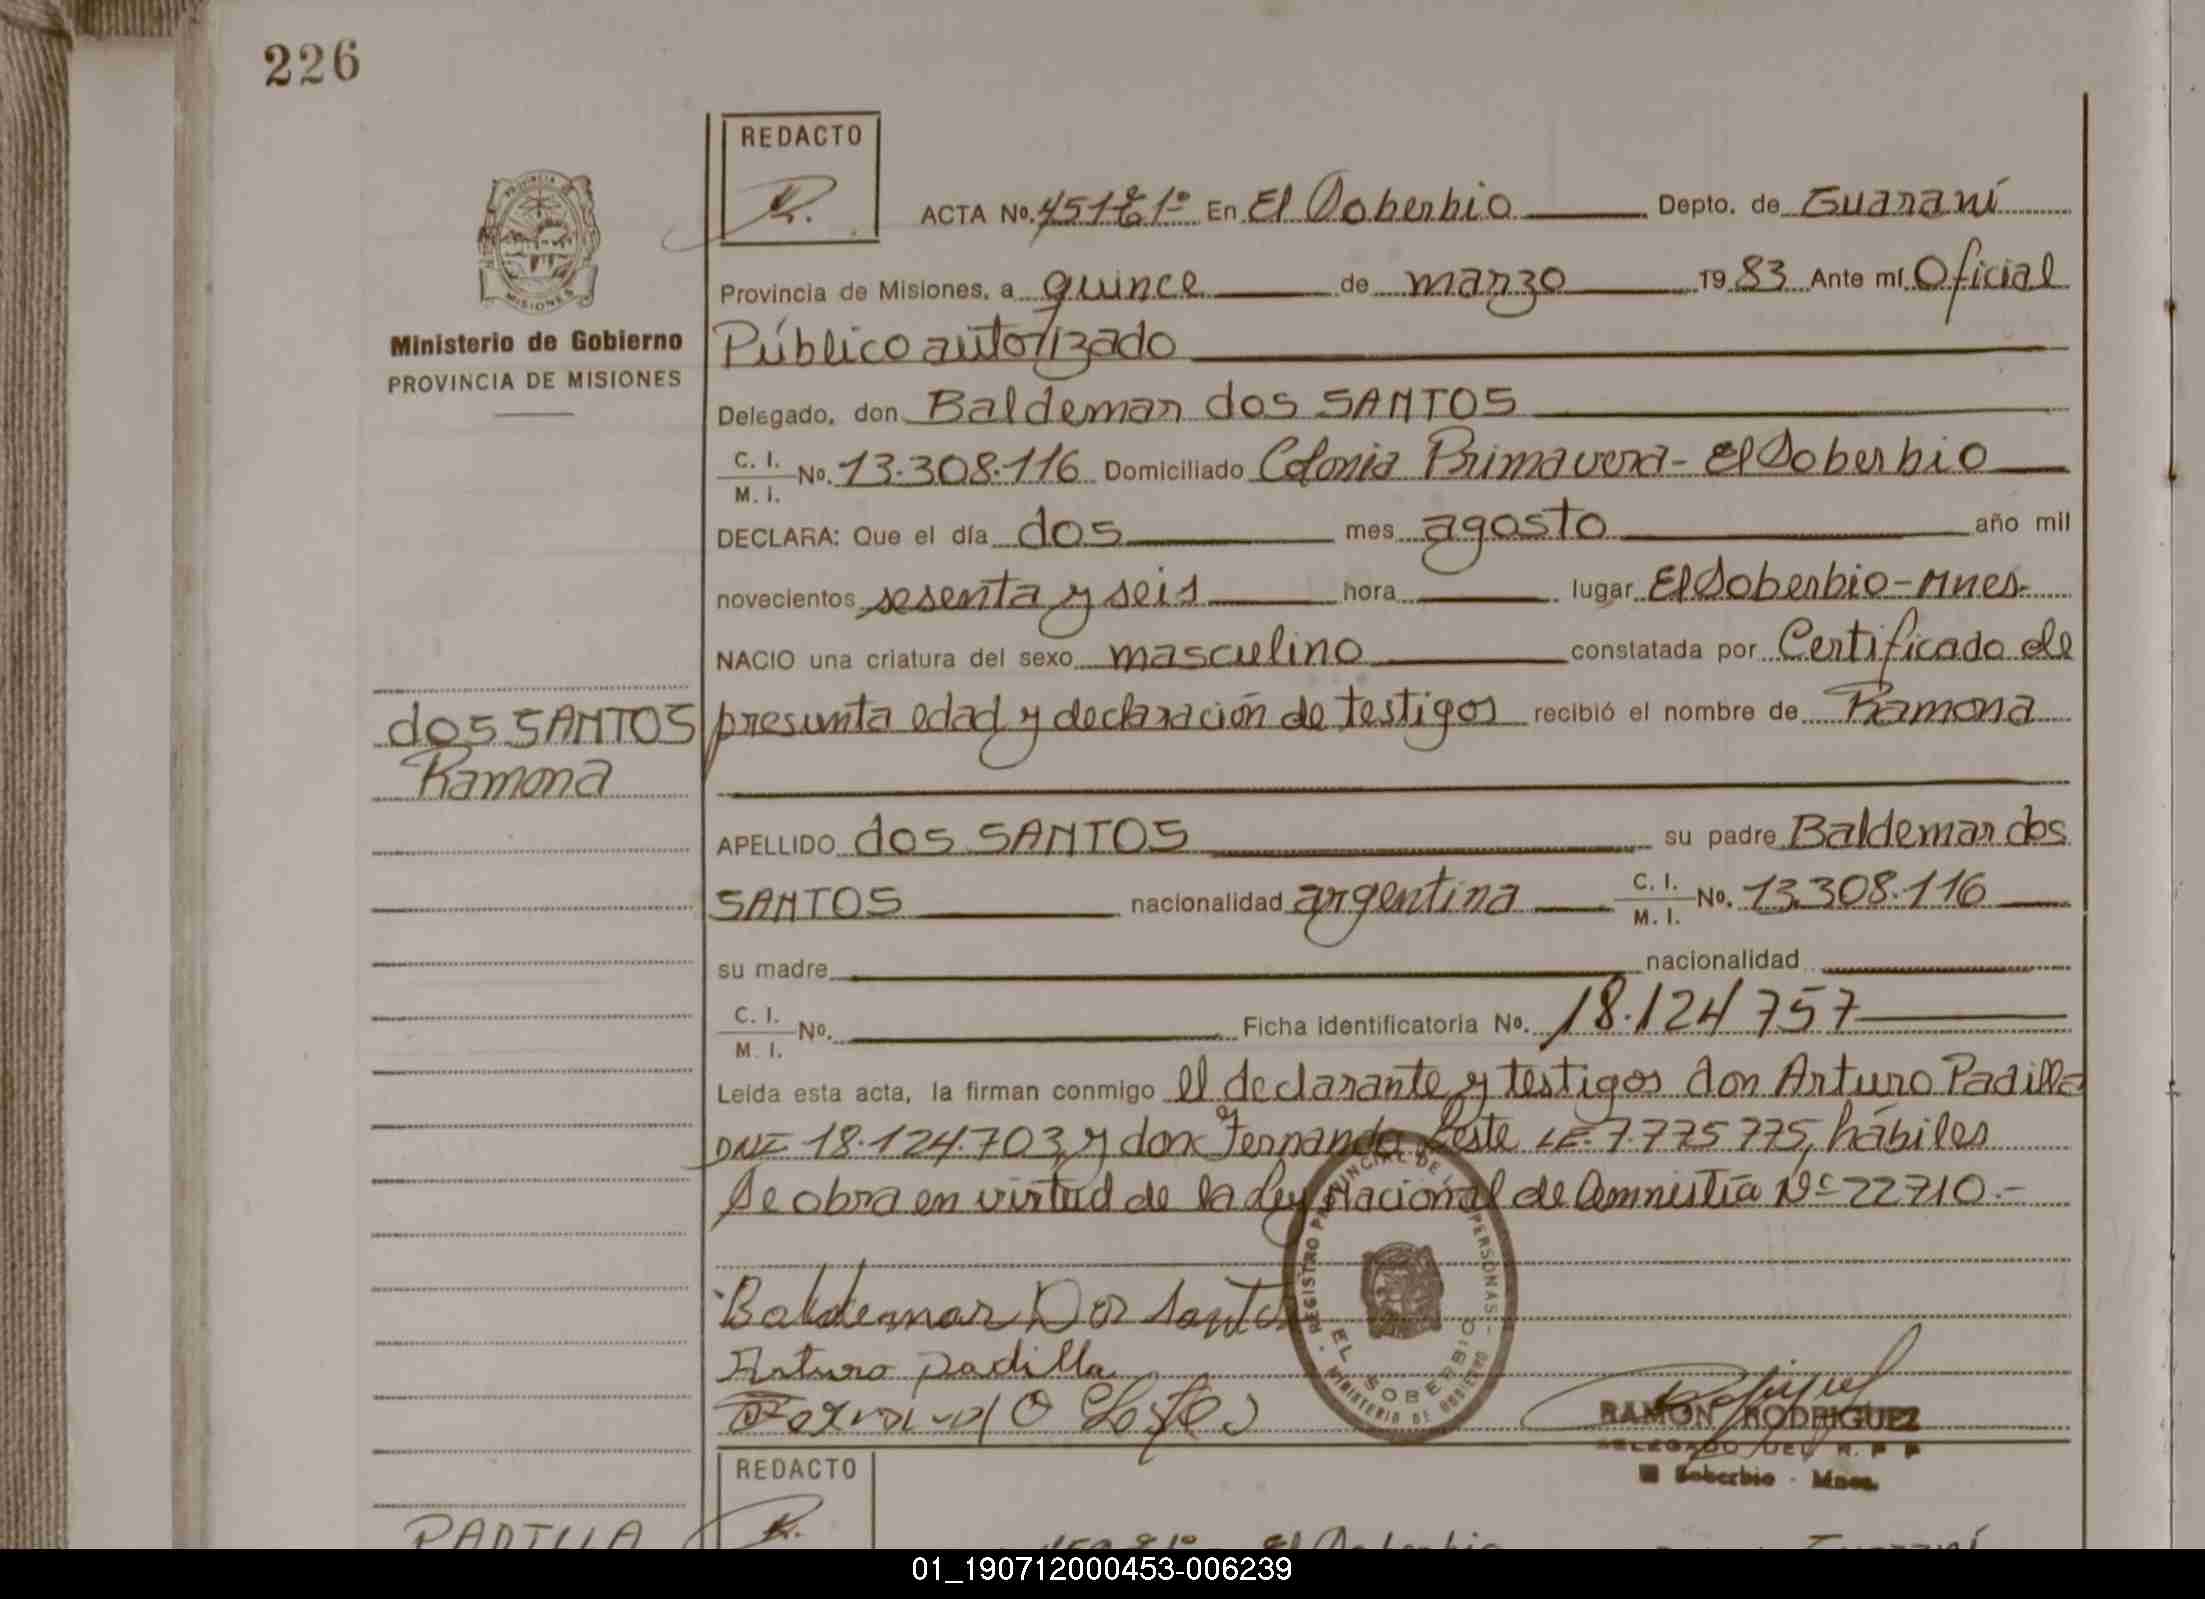 226
REDACTO
ACTA No. 451 tº 1º En El Soberbio Depto. de Guaraní
Provincia de Misiones, a quince de marzo 1983 Ante mí Oficial
Ministerio de Gobierno
PROVINCIA DE MISIONES
Público autorizado
Delegado, don Baldemar dos SANTOS
C. I.
M. I. No. 13.308.116 Domiciliado Colonia Primavera - El Soberbio
DECLARA: Que el día dos mes agosto año mil
novecientos sesenta y seis hora lugar El Soberbio - Mnes-
NACIO una criatura del sexo masculino constatada por Certificado de
dos SANTOS
Ramona
presunta edad y declaración de testigos recibió el nombre de Ramona
APELLIDO dos SANTOS su padre Baldemar dos
SANTOS nacionalidad argentina C. I. M. I. No. 13.308.116
su madre nacionalidad
C. I.
M. I. No. Ficha identificatoria No. 18.124 757
Leída esta acta, la firman conmigo el declarante y testigos don Arturo Padilla
DNI 18.124.703, y don Fernando LE. 7.775 775, hábiles
Se obra en virtud de la Ley Nacional de Amnistía Nº 22710.-
Baldemar Dos Santos
Arturo padilla
REGISTRO PROVINCIAL DE PERSONAS
EL SOBERBIO
MINISTERIO DE GOBIERNO
RAMON RODRIGUEZ
DELEGADO DEL R. P. P.
El Soberbio - Mnes.
REDACTO
PADILLA
El Soberbio Guaraní
01_190712000453-006239